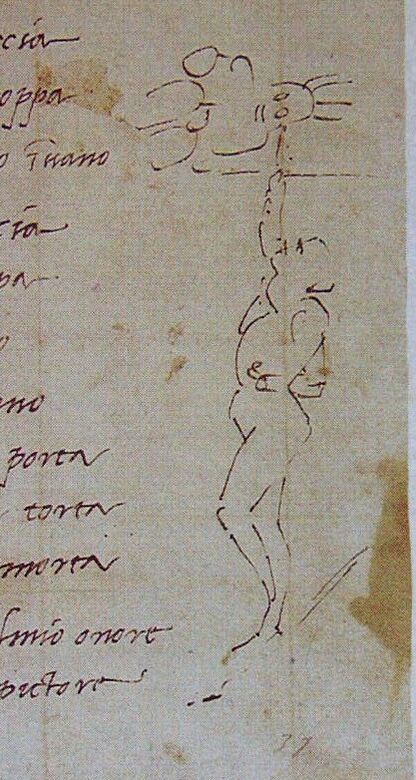 ccia
oppa
o ĩuano
ccia
pa
o
ano
porta
torta
morta
l mio onore
pictore
37